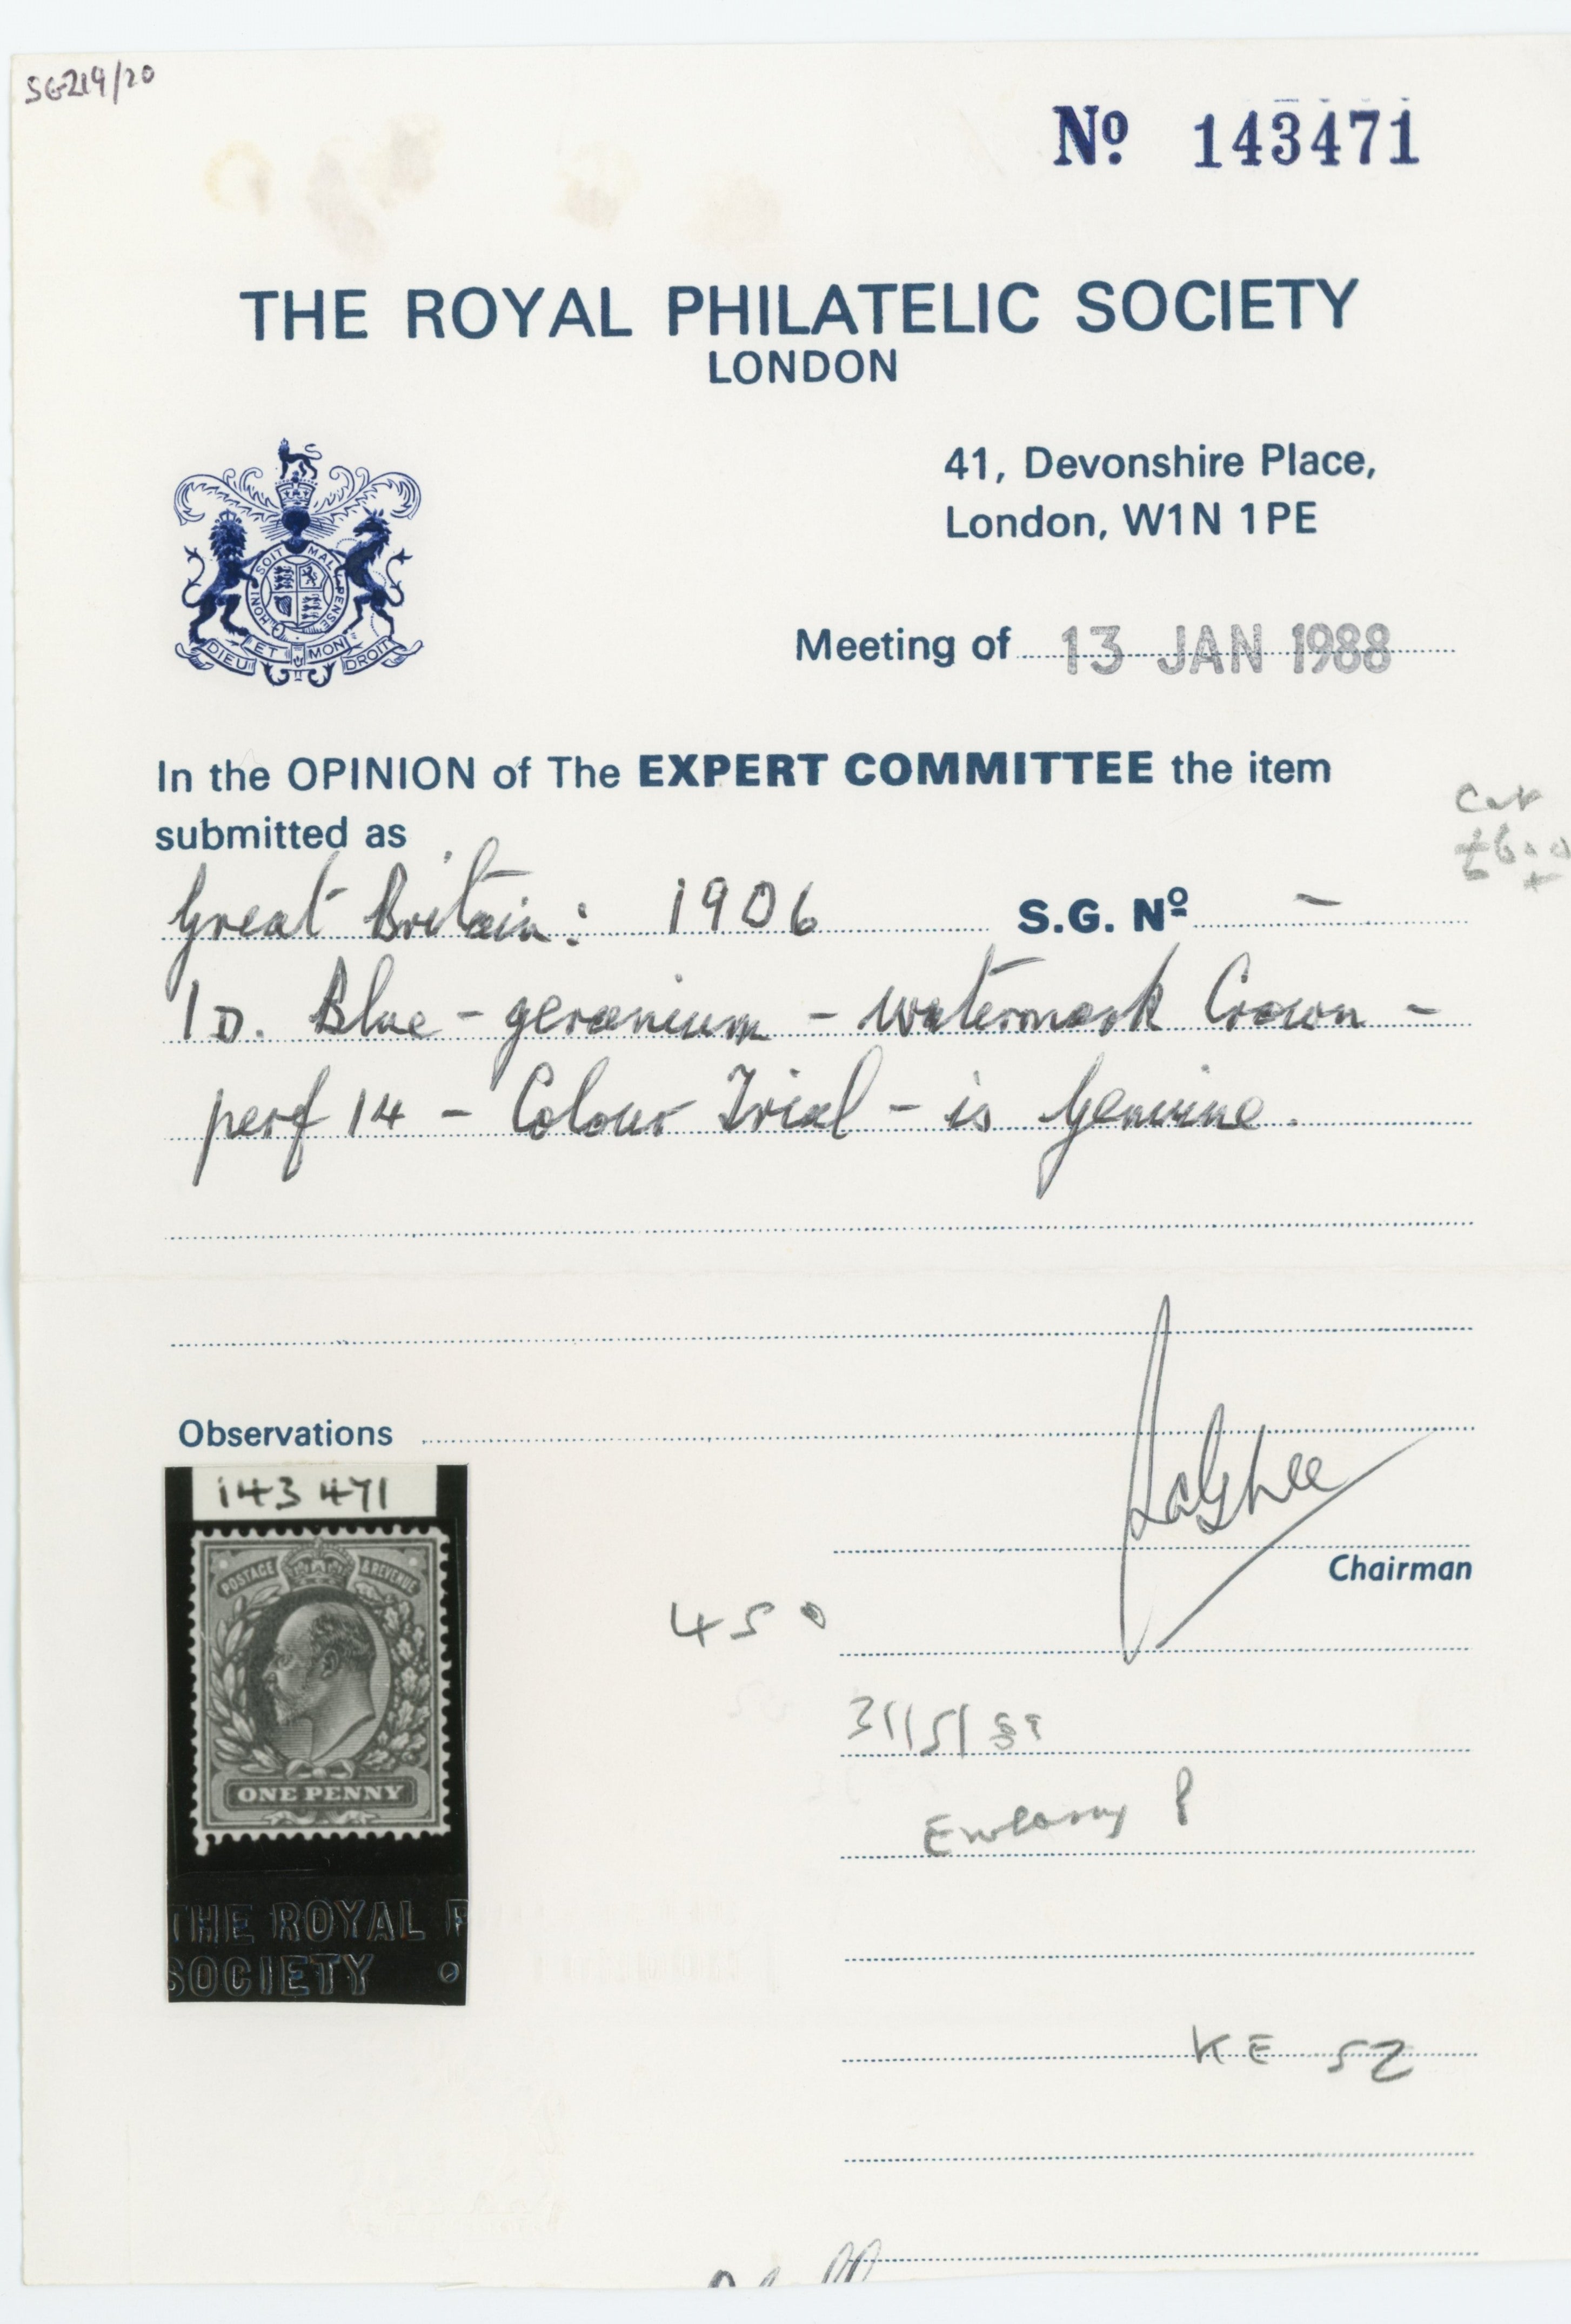 SG219/20
Nº 143471
THE ROYAL PHILATELIC SOCIETY
LONDON
41, Devonshire Place,
London, W1N 1PE
HONI SOIT MAL PENSE
DIEU ET MON DROIT
Meeting of 13 JAN 1988
In the OPINION of The EXPERT COMMITTEE the item
submitted as
Cat
Great Britain: 1906 S.G. Nº –
1D. Blue-geranium – watermark Crown –
perf 14 – Colour Trial – is genuine.
Observations
143471
POSTAGE & REVENUE
ONE PENNY
THE ROYAL P
SOCIETY
Chairman
450
31/5/89
KE 52